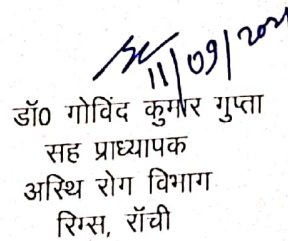 11/09/202
डॉ0 गोविंद कुमार गुप्ता
सह प्राध्यापक
अस्थि रोग विभाग
रिम्स, राँची